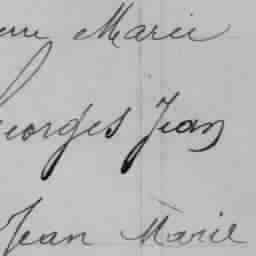 Marie
Georges Jean
Jean Marie